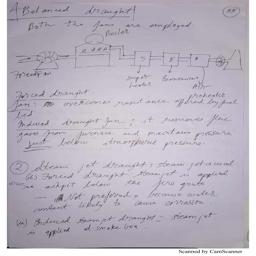 A Balanced draught)
Both the fans are employed.
Boiler
S E A
Forced fan
Super heater Economiser Air preheater
Forced draught
Fan: overcomes resistance offered by fuel
bed
Induced draught fan: it removes flue
gases from furnace and maintain pressure
just below atmospheric pressure.
② Steam jet draught: steam jet is used
(a) Forced draught: steam jet is applied
ashpit below the fire grate
Not preferred, because water
content likely to cause corrosion
Induced steamjet draught: steam jet
is applied @ smoke box.
Scanned by CamScanner